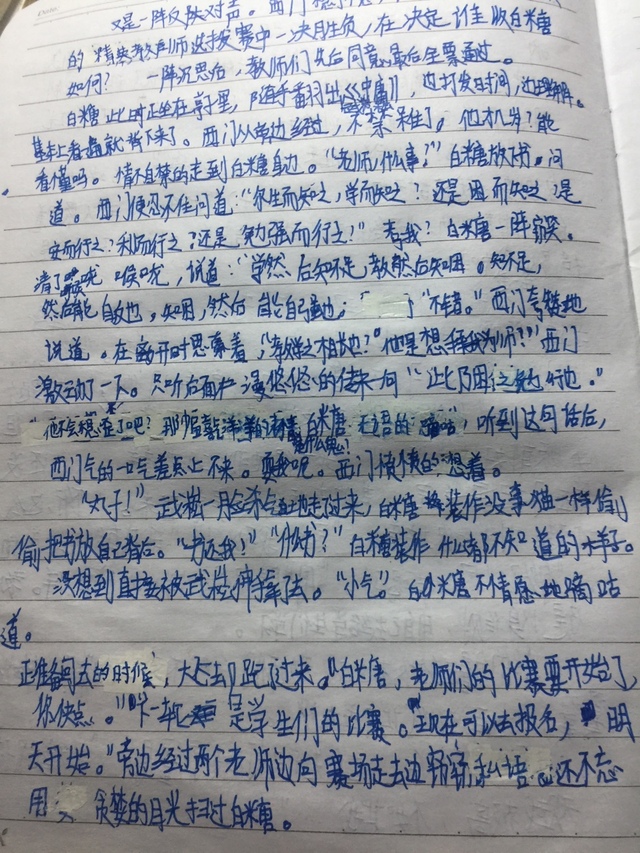 又是一阵反对声。西门
的 精英老师选拔赛中一决胜负,在决定谁收白米糖
如何? 一阵沉思后,教师们先后同意,最后全票通过。
白米糖此时正坐在亭里,随手翻出《中庸》,边打发时间,边理解。
基本上看遍就背下来了。西门从旁边经过,不禁呆住了,他才几岁?能
看懂吗。情不自禁的走到白米糖身边。"老师,什么事?"白米糖放下书,问
道。西门便忍不住问道:"尔生而知之?学而知之?还是困而知之?是
安而行之?利而行之?还是勉强而行之?"考我?白米糖一阵
清了清 喉咙,说道:"学然后知不足,教然后知困。知不足,
然后能自反也,知困,然后能自强也;"不错。"西门夸赞地
说道。在离开时思索着,"教学之相长也?"他是想拜我为师?"西门
激动了一下。只听后面 漫悠悠的传来一句"此乃困之勉行也。"
"他不会想歪了吧? 白米糖无语的 听到这句话后,
西门气的一口气差点上不来。耍我呢。西门愤愤的想着。
"丸子!"武崧一脸杀气地走过来,白米糖装作没事猫一样偷
偷把书放自己背后。"书还我!""什么书?"白米糖装作什么都不知道的样子。
没想到直接被武崧伸手拿了去。"小气。"白米糖不情愿地嘀咕
道。
正准备回去的时候,大飞跑过来。"白米糖,老师们的比赛要开始了,
你快点。""下一轮是学生们的比赛。现在可以去报名,明
天开始。"旁边经过两个老师边向赛场走去边窃窃私语 还不忘
用 贪婪的目光扫过白米糖。